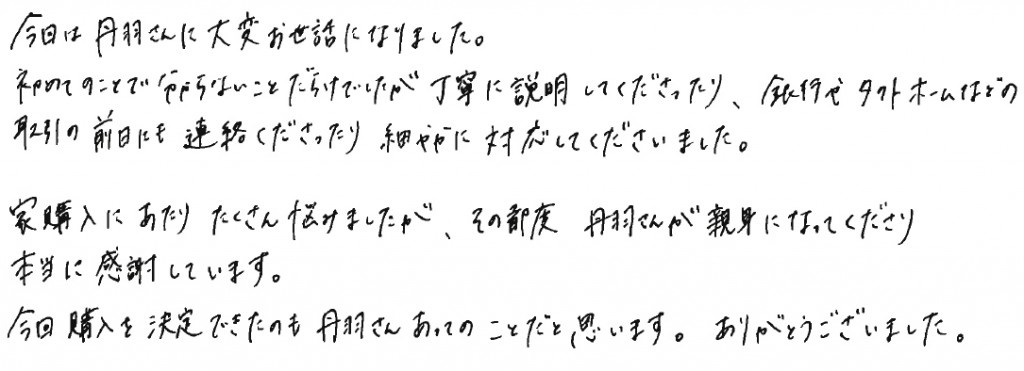 今日は丹羽さんに大変お世話になりました。
初めてのことで分からないことだらけでしたが丁寧に説明してくださったり、銀行やタクトホームなどの
取引の前日にも連絡くださったり細やかに対応してくださいました。
家購入にあたりたくさん悩みましたが、その都度丹羽さんが親身になってくださり
本当に感謝しています。
今回購入を決定できたのも丹羽さんあってのことだと思います。ありがとうございました。